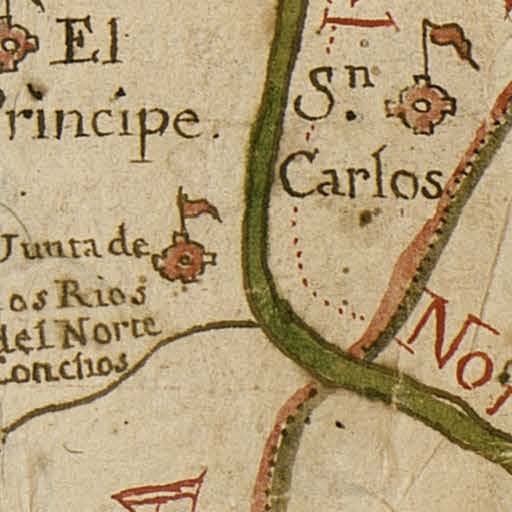 El
Principe.
Sn.
Carlos
Junta de
los Rios
del Norte
Conchos
Nor